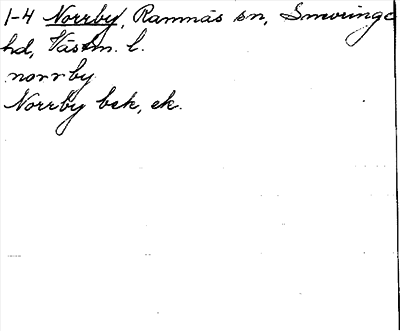 1-4 Norrby, Ramnäs sn, Snevringe
hd, Västm. l.
norrby
Norrby bek, ek.